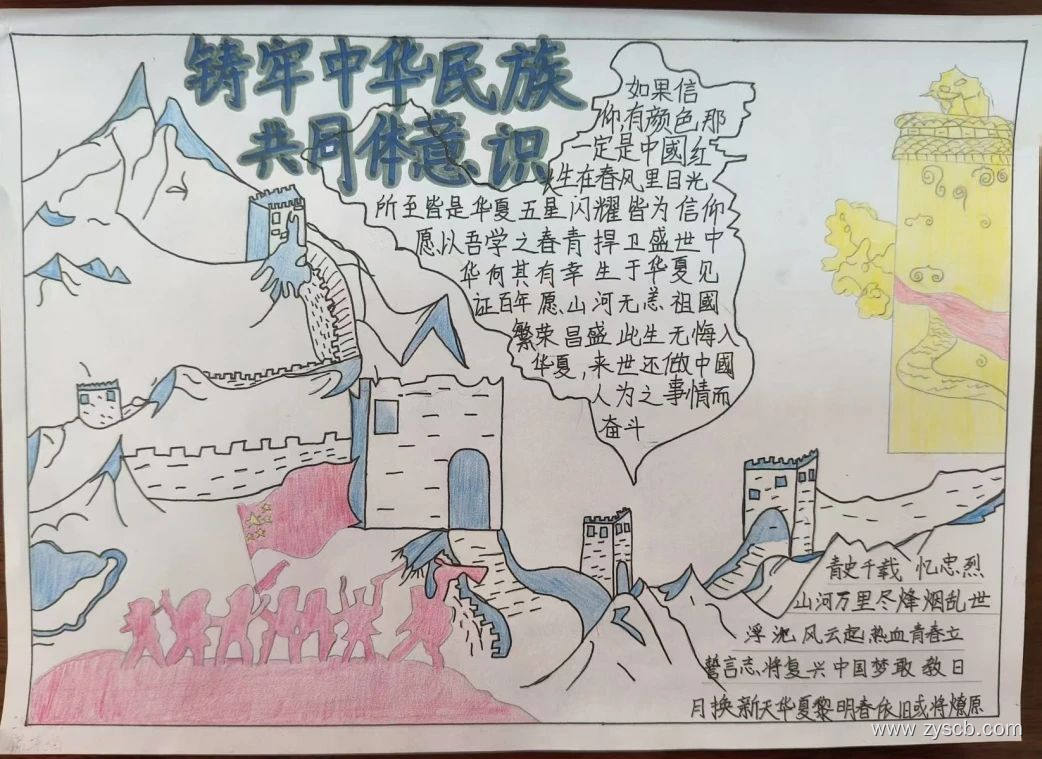 铸牢中华民族
共同体意识
如果信
仰有颜色那
一定是中國红
生在春风里目光
所至皆是华夏五星闪耀皆为信仰
愿以吾学之春青捍卫盛世中
华何其有幸生于华夏见
证百年愿山河无恙祖國
繁荣昌盛此生无悔入
华夏,来世还做中國
人为之事情而
奋斗
青史千载忆忠烈
山河万里尽烽烟乱世
浮沱风云起热血青春立
誓言志将复兴中国梦敢教日
月换新天华夏黎明春依旧或将燎原
www.zyscb.com